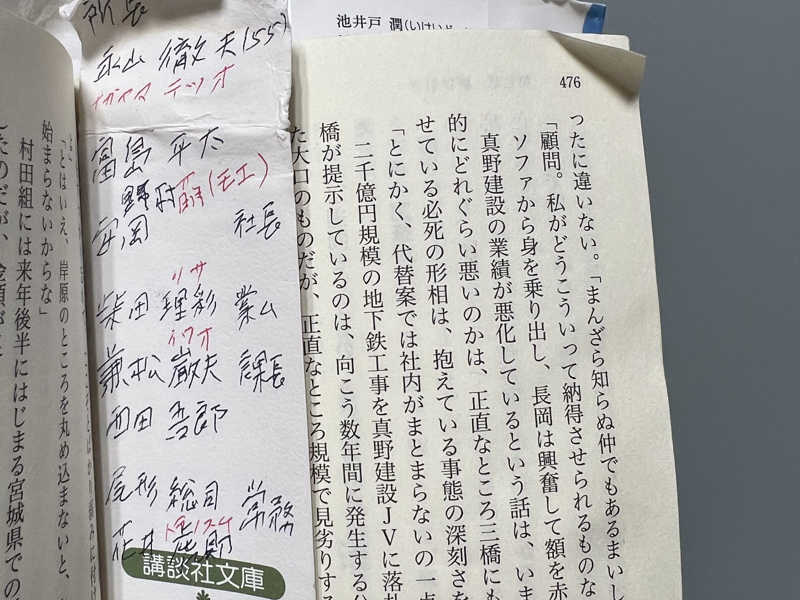 池井戸 潤
476
ったに違いない。「まんざら知らぬ仲でもあるまいし
「顧問。私がどうこういって納得させられるものな
ソファから身を乗り出し、長岡は興奮して額を赤
真野建設の業績が悪化しているという話は、いま
的にどれぐらい悪いのかは、正直なところ三橋にも
せている必死の形相は、抱えている事態の深刻さを
「とにかく、代替案では社内がまとまらないの一点
二千億円規模の地下鉄工事を真野建設JVに落札
橋が提示しているのは、向こう数年間に発生する公
た大口のものだが、正直なところ規模で見劣りする
所長
永山 徹夫(55)
ナガヤマ テツオ
富島 平太
野村 萠(モエ)
安岡 社長
リサ
柴田 理彩 業ム
イワオ
兼松 巌夫 課長
西田 吾郎
尾形 総司 常務
講談社文庫
「とはいえ、岸原のところを丸め込まないと、
始まらないからな」
村田組には来年後半にはじまる宮城県での